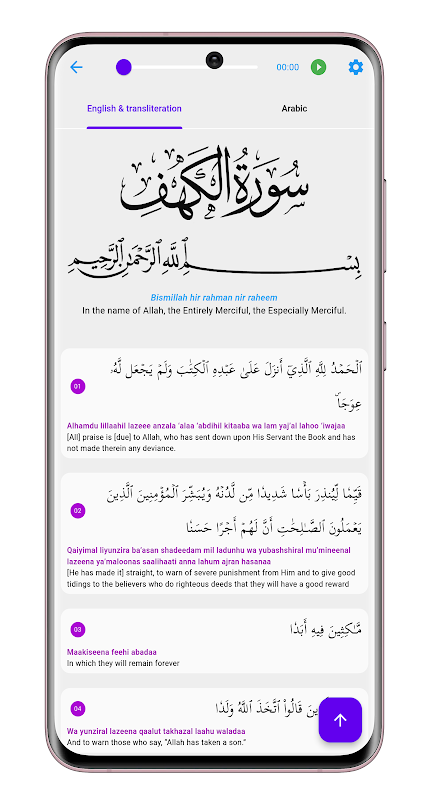 00:00
English & transliteration
Arabic
سُورَةُ الكَهْفِ
بِسْمِ ٱللَّهِ ٱلرَّحْمَٰنِ ٱلرَّحِيمِ
Bismillah hir rahman nir raheem
In the name of Allah, the Entirely Merciful, the Especially Merciful.
01
ٱلۡحَمۡدُ لِلَّهِ ٱلَّذِيٓ أَنزَلَ عَلَىٰ عَبۡدِهِ ٱلۡكِتَٰبَ وَلَمۡ يَجۡعَل لَّهُۥ
عِوَجَاۜ
Alhamdu lillaahil lazeee anzala 'alaa 'abdihil kitaaba wa lam yaj'al lahoo 'iwajaa
[All] praise is [due] to Allah, who has sent down upon His Servant the Book and has
not made therein any deviance.
02
قَيِّمٗا لِّيُنذِرَ بَأۡسٗا شَدِيدٗا مِّن لَّدُنۡهُ وَيُبَشِّرَ ٱلۡمُؤۡمِنِينَ ٱلَّذِينَ
يَعۡمَلُونَ ٱلصَّٰلِحَٰتِ أَنَّ لَهُمۡ أَجۡرًا حَسَنٗا
Qaiyimal liyunzira ba'asan shadeedam mil ladunhu wa yubashshiral mu'mineenal
lazeena ya'maloonas saalihaati anna lahum ajran hasanaa
[He has made it] straight, to warn of severe punishment from Him and to give good
tidings to the believers who do righteous deeds that they will have a good reward
03
مَّٰكِثِينَ فِيهِ أَبَدٗا
Maakiseena feehi abadaa
In which they will remain forever
04
قَالُواْ ٱتَّخَذَ ٱللَّهُ وَلَدٗا
Wa yunziral lazeena qaalut takhazal laahu waladaa
And to warn those who say, "Allah has taken a son."